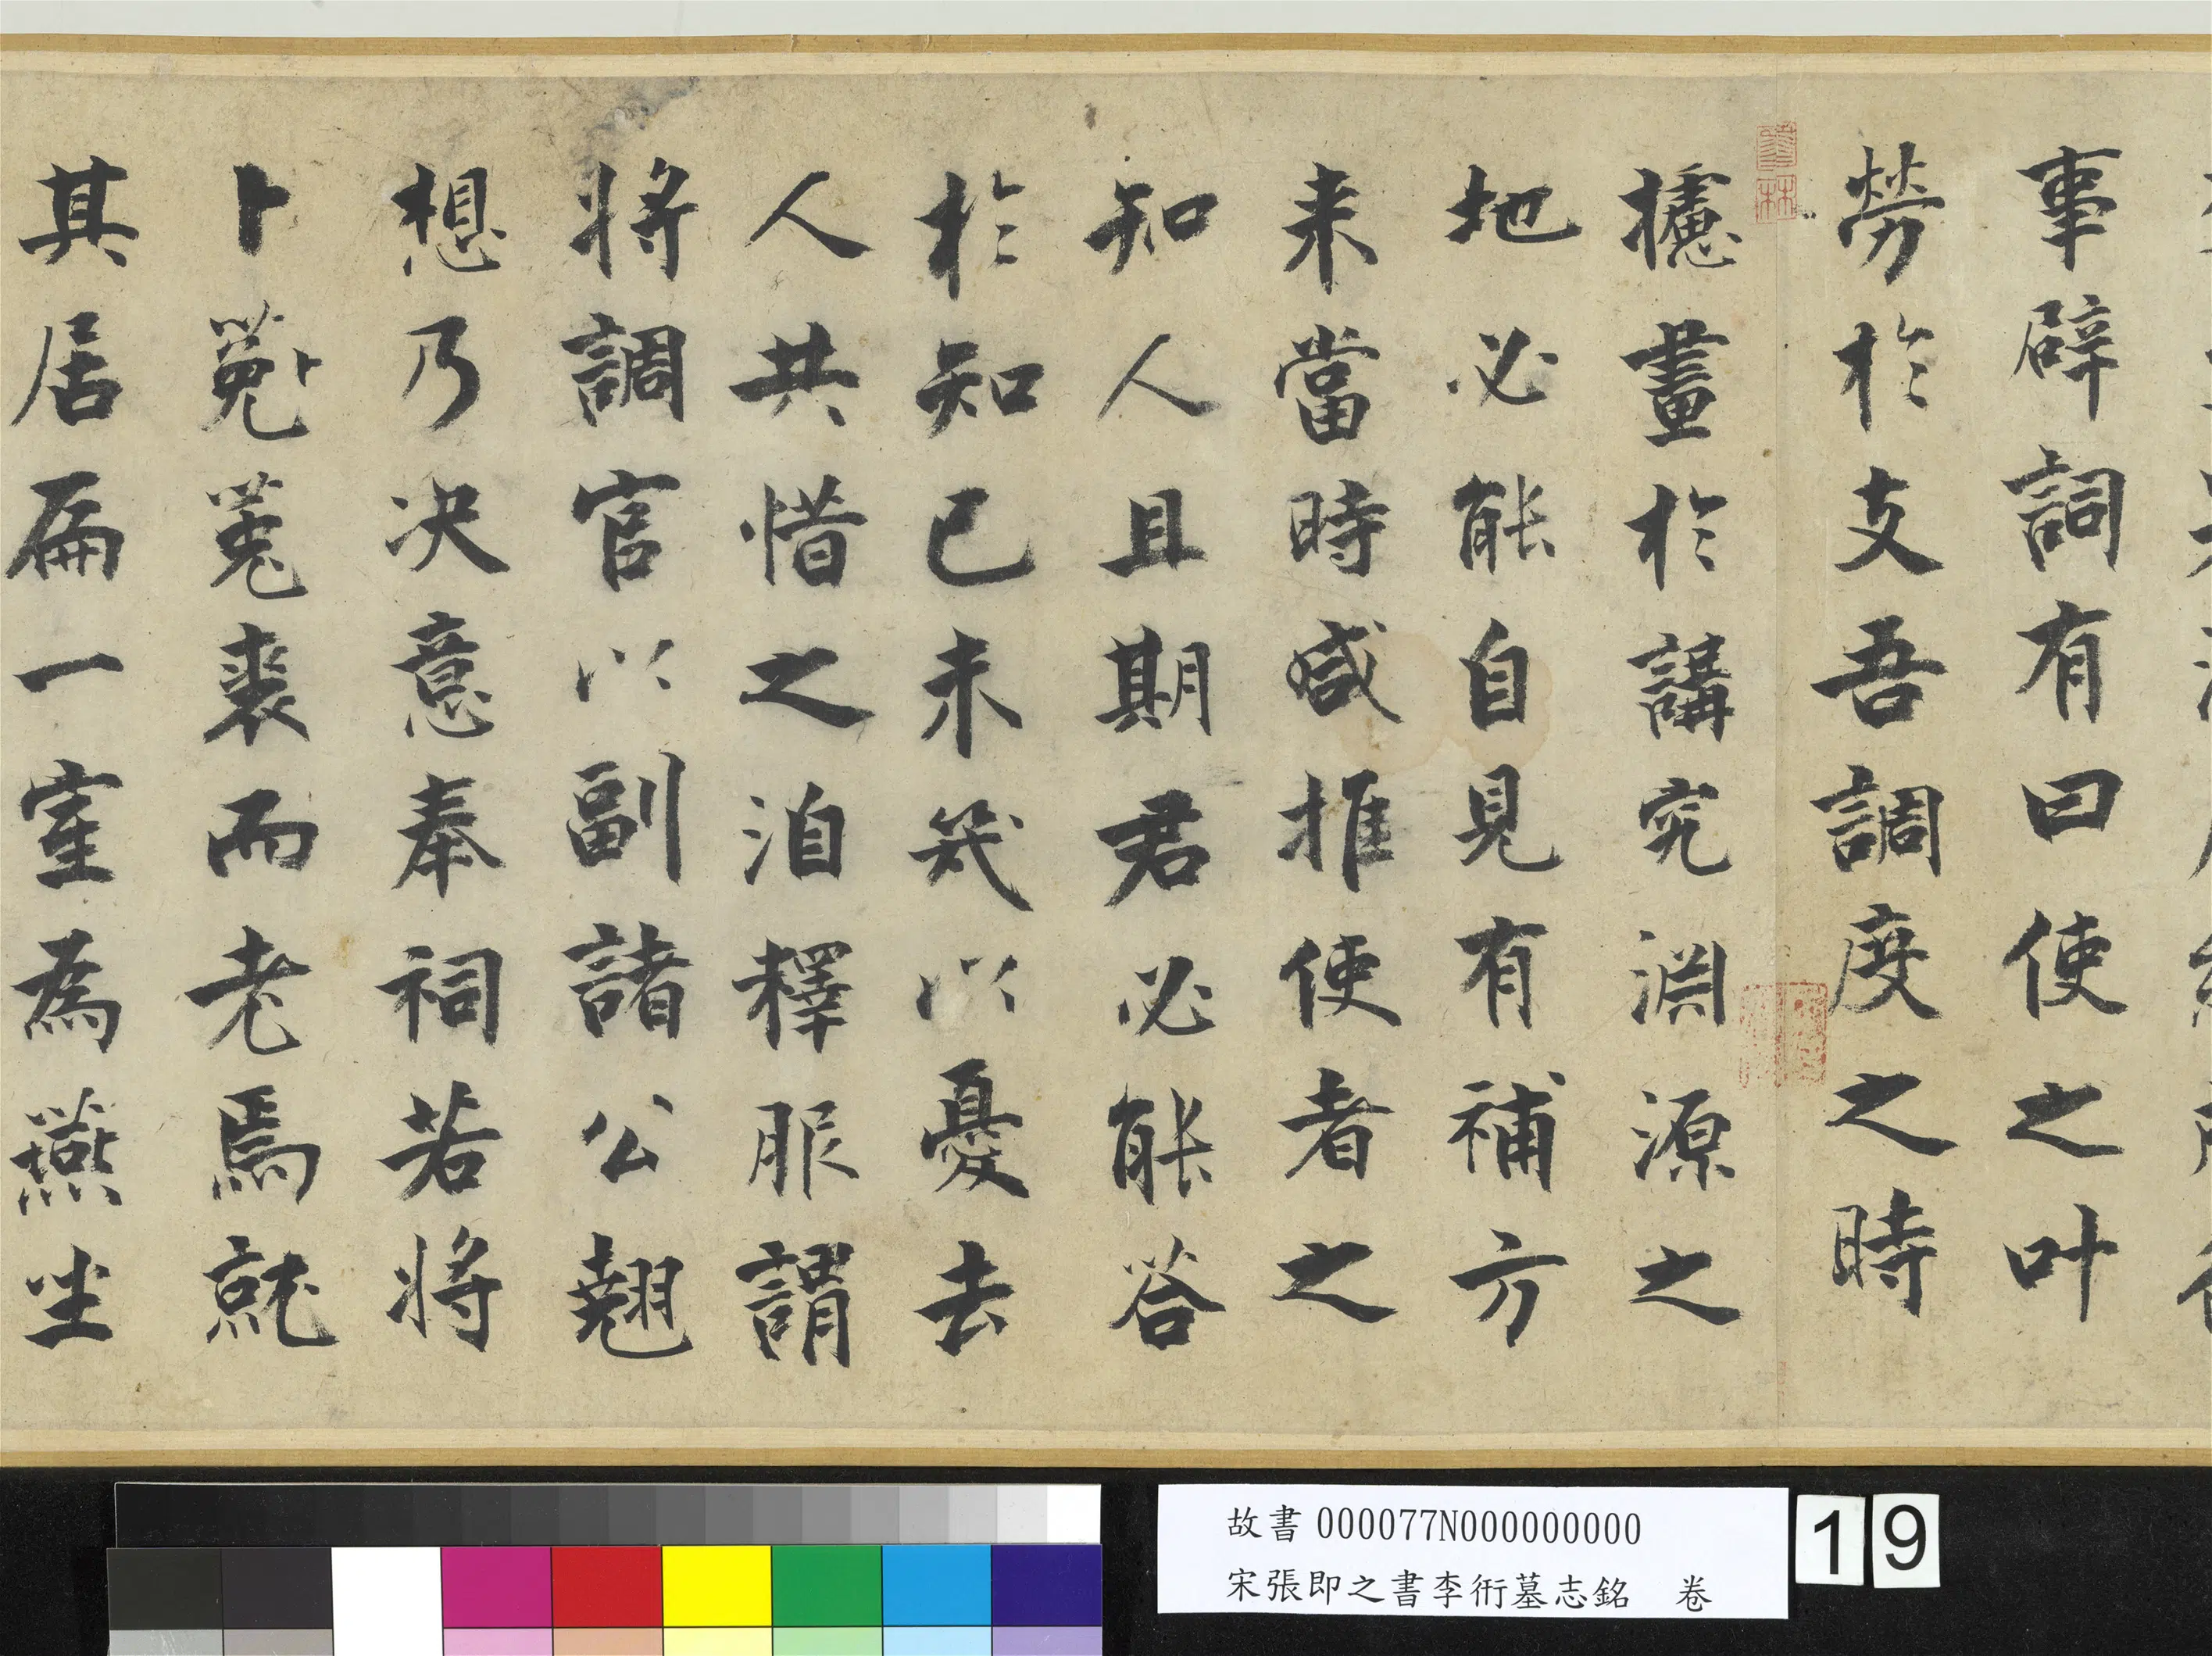 事辟詞有曰使之叶
勞於支吾調度之時
攄畫於講究淵源之
地必能自見有補方
来當時咸推使者之
知人且期君必能荅
於知已未㡬以憂去
人共惜之洎釋服謂
將調官以副諸公翹
想乃决意奉祠若將
卜菟裘而老焉就
其居扁一室為燕坐
故書 000077N000000000
宋張即之書李衎墓志銘 卷
19